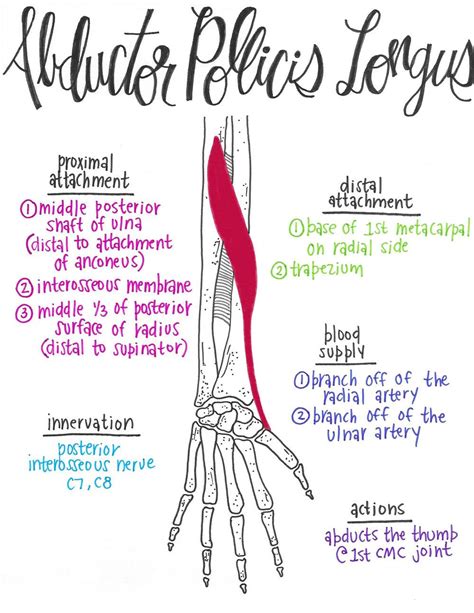 Abductor Pollicis Longus
proximal
attachment
① middle posterior
shaft of ulna
(distal to attachment
of anconeus)
② interosseous membrane
③ middle 1/3 of posterior
surface of radius
(distal to supinator)
innervation
posterior
interosseous nerve
C7, C8
distal
attachment
① base of 1st metacarpal
on radial side
② trapezium
blood
supply
① branch off of the
radial artery
② branch off of the
ulnar artery
actions
abducts the thumb
@ 1st CMC joint